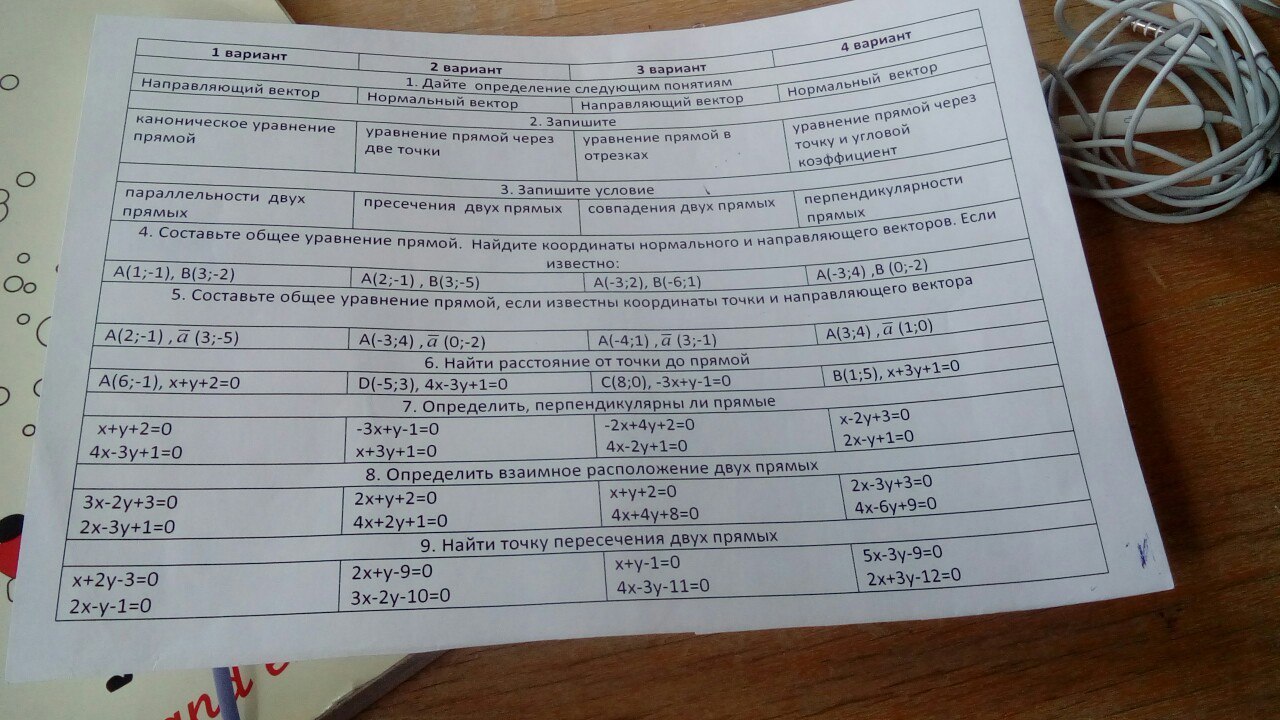 1 вариант
2 вариант
3 вариант
4 вариант
1. Дайте определение следующим понятиям
Направляющий вектор
Нормальный вектор
Направляющий вектор
Нормальный вектор
2. Запишите
каноническое уравнение
прямой
уравнение прямой через
две точки
уравнение прямой в
отрезках
уравнение прямой через
точку и угловой
коэффициент
3. Запишите условие
параллельности двух
прямых
пресечения двух прямых
совпадения двух прямых
перпендикулярности
прямых
4. Составьте общее уравнение прямой. Найдите координаты нормального и направляющего векторов. Если
известно:
A(1;-1), B(3;-2)
A(2;-1) , B(3;-5)
A(-3;2), B(-6;1)
A(-3;4) ,B (0;-2)
5. Составьте общее уравнение прямой, если известны координаты точки и направляющего вектора
A(2;-1) , a̅ (3;-5)
A(-3;4) , a̅ (0;-2)
A(-4;1) , a̅ (3;-1)
A(3;4) , a̅ (1;0)
6. Найти расстояние от точки до прямой
A(6;-1), x+y+2=0
D(-5;3), 4x-3y+1=0
C(8;0), -3x+y-1=0
B(1;5), x+3y+1=0
7. Определить, перпендикулярны ли прямые
x+y+2=0
4x-3y+1=0
-3x+y-1=0
x+3y+1=0
-2x+4y+2=0
4x-2y+1=0
x-2y+3=0
2x-y+1=0
8. Определить взаимное расположение двух прямых
3x-2y+3=0
2x-3y+1=0
2x+y+2=0
4x+2y+1=0
x+y+2=0
4x+4y+8=0
2x-3y+3=0
4x-6y+9=0
9. Найти точку пересечения двух прямых
x+2y-3=0
2x-y-1=0
2x+y-9=0
3x-2y-10=0
x+y-1=0
4x-3y-11=0
5x-3y-9=0
2x+3y-12=0
and